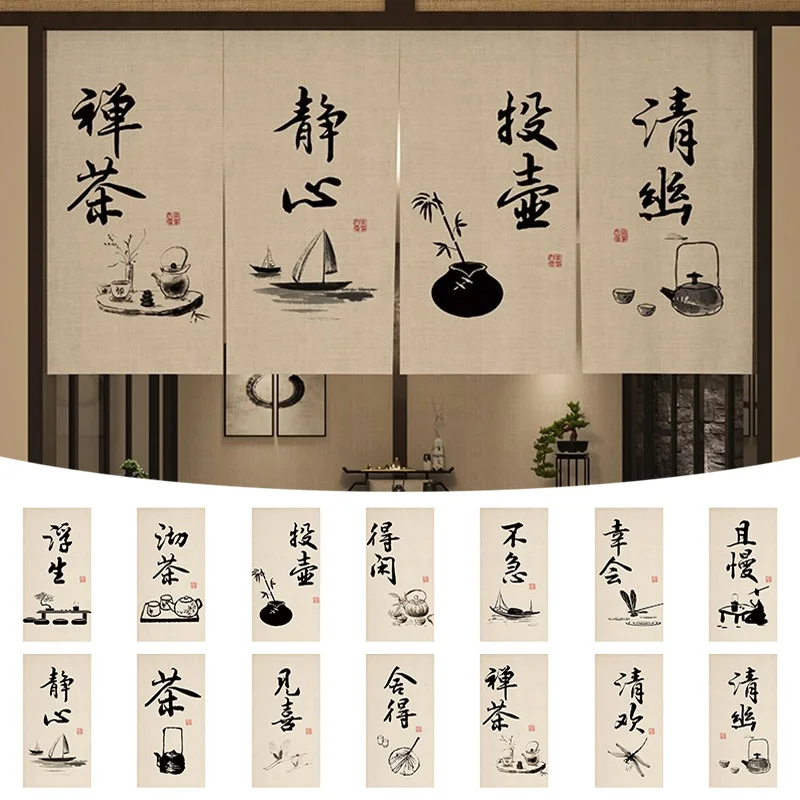 禅茶
静心
投壶
清幽
浮生
沏茶
投壶
得闲
不急
幸会
且慢
静心
茶
见喜
舍得
禅茶
清欢
清幽